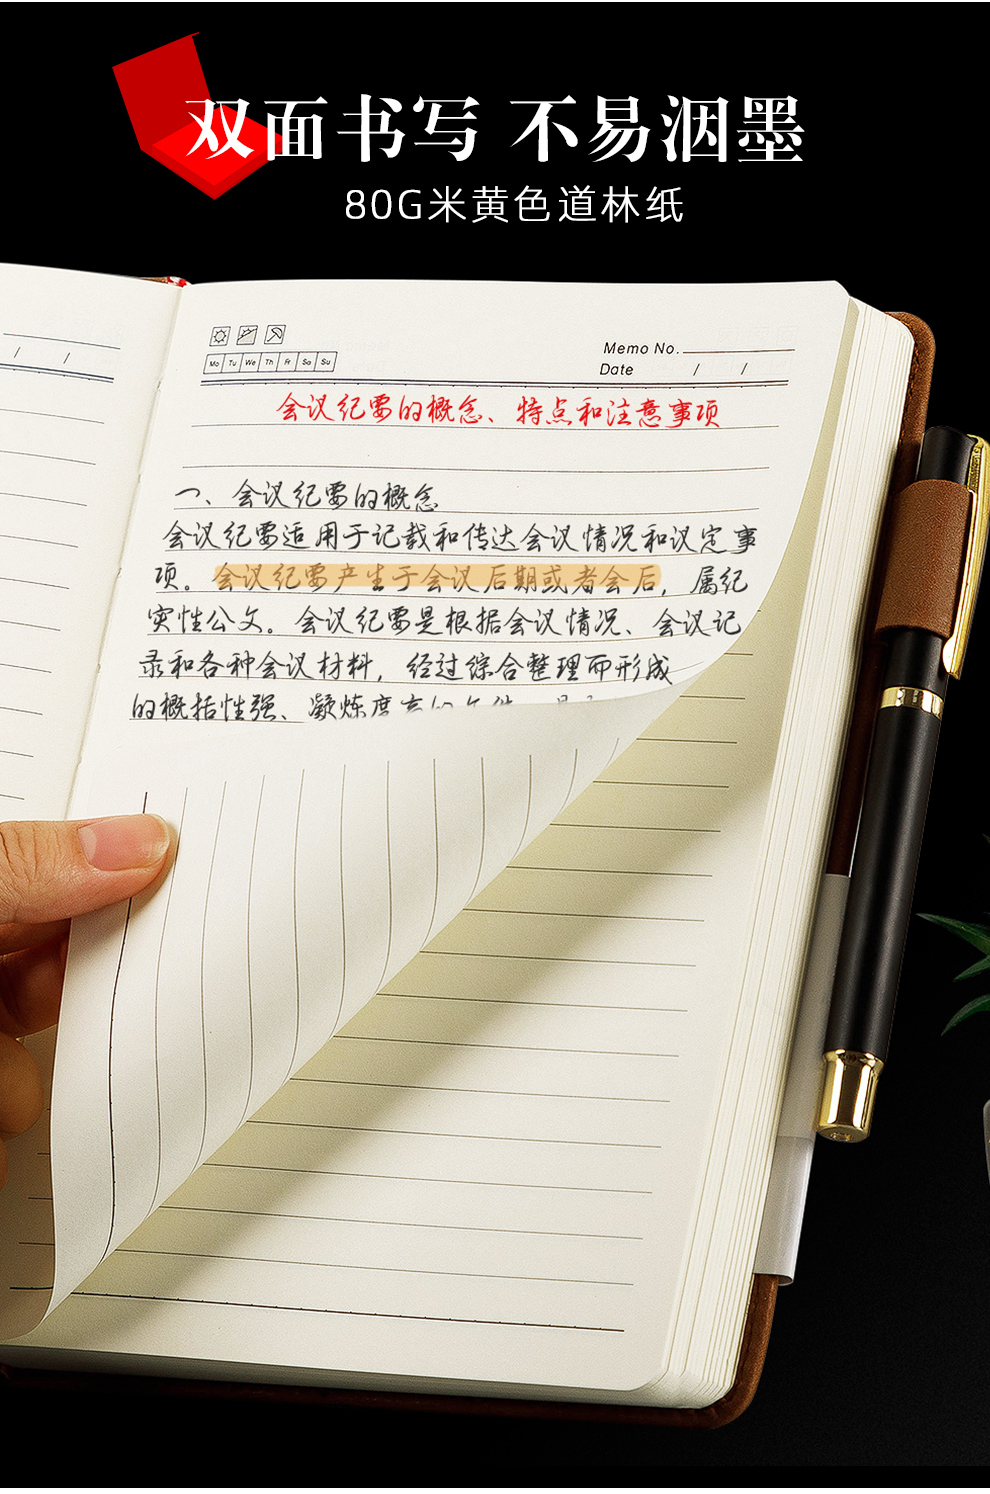 双面书写 不易洇墨
80G米黄色道林纸
Mo Tu We Th Fr Sa Su
Memo No.
Date / /
/ /
会议纪要的概念、特点和注意事项
一、会议纪要的概念
会议纪要适用于记载和传达会议情况和议定事
项。会议纪要产生于会议后期或者会后，属纪
实性公文。会议纪要是根据会议情况、会议记
录和各种会议材料，经过综合整理而形成
的概括性强、凝炼度高的